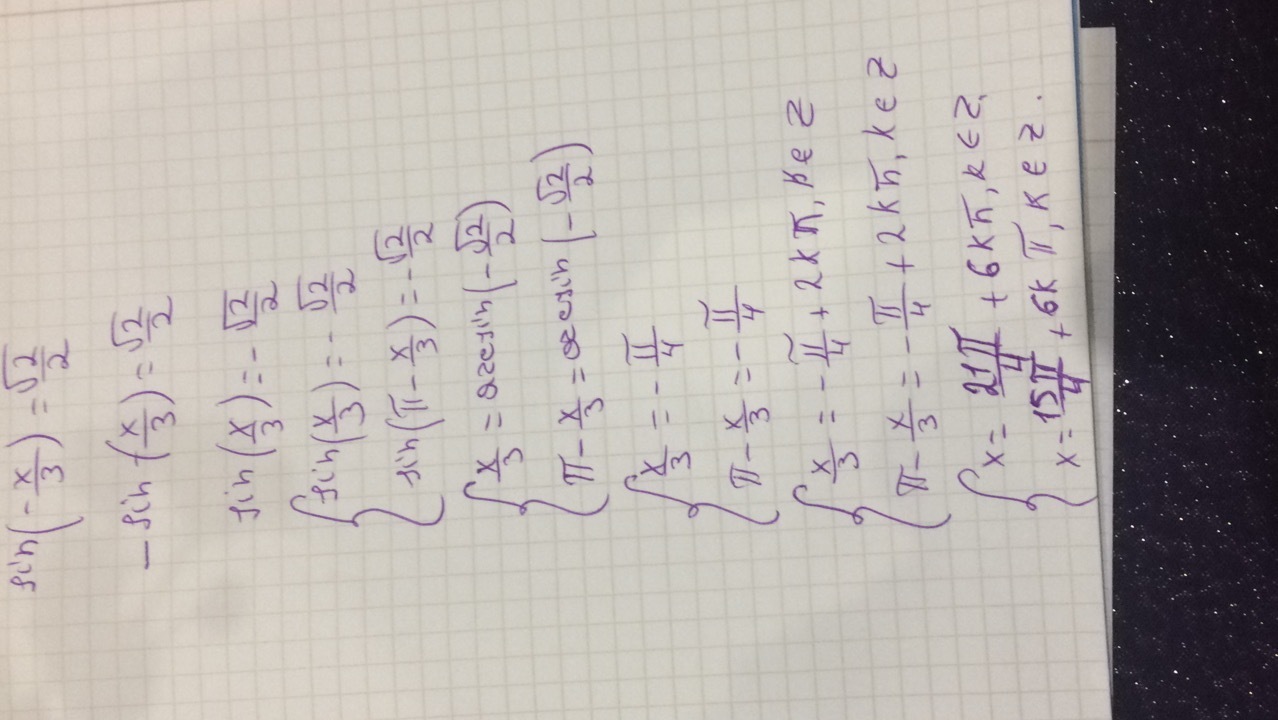 sin(-x/3) = √2/2
-sin(x/3) = √2/2
sin(x/3) = -√2/2
{ sin(x/3) = -√2/2
sin(π - x/3) = -√2/2
{ x/3 = arcsin(-√2/2)
π - x/3 = arcsin(-√2/2)
{ x/3 = -π/4
π - x/3 = -π/4
{ x/3 = -π/4 + 2kπ, k ∈ Z
π - x/3 = -π/4 + 2kπ, k ∈ Z
{ x = 21π/4 + 6kπ, k ∈ Z,
x = 15π/4 + 6kπ, k ∈ Z.